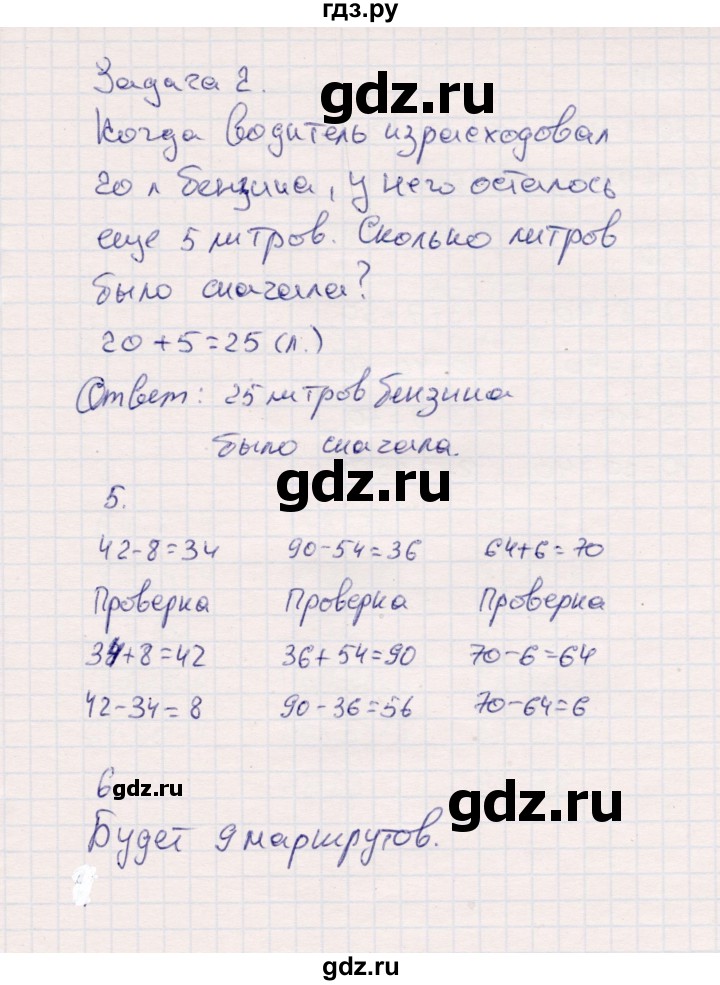 гдз.ру
Задача 2.
gdz.ru
Когда водитель израсходовал
20 л бензина, у него осталось
еще 5 литров. Сколько литров
было сначала?
20+5=25 (л.)
Ответ: 25 литров бензина
было сначала.
gdz.ru
5.
42-8=34 90-54=36 64+6=70
Проверка Проверка Проверка
34+8=42 36+54=90 70-6=64
42-34=8 90-36=56 70-64=6
6
gdz.ru
gdz.ru
Будет 9 маршрутов.
gdz.ru